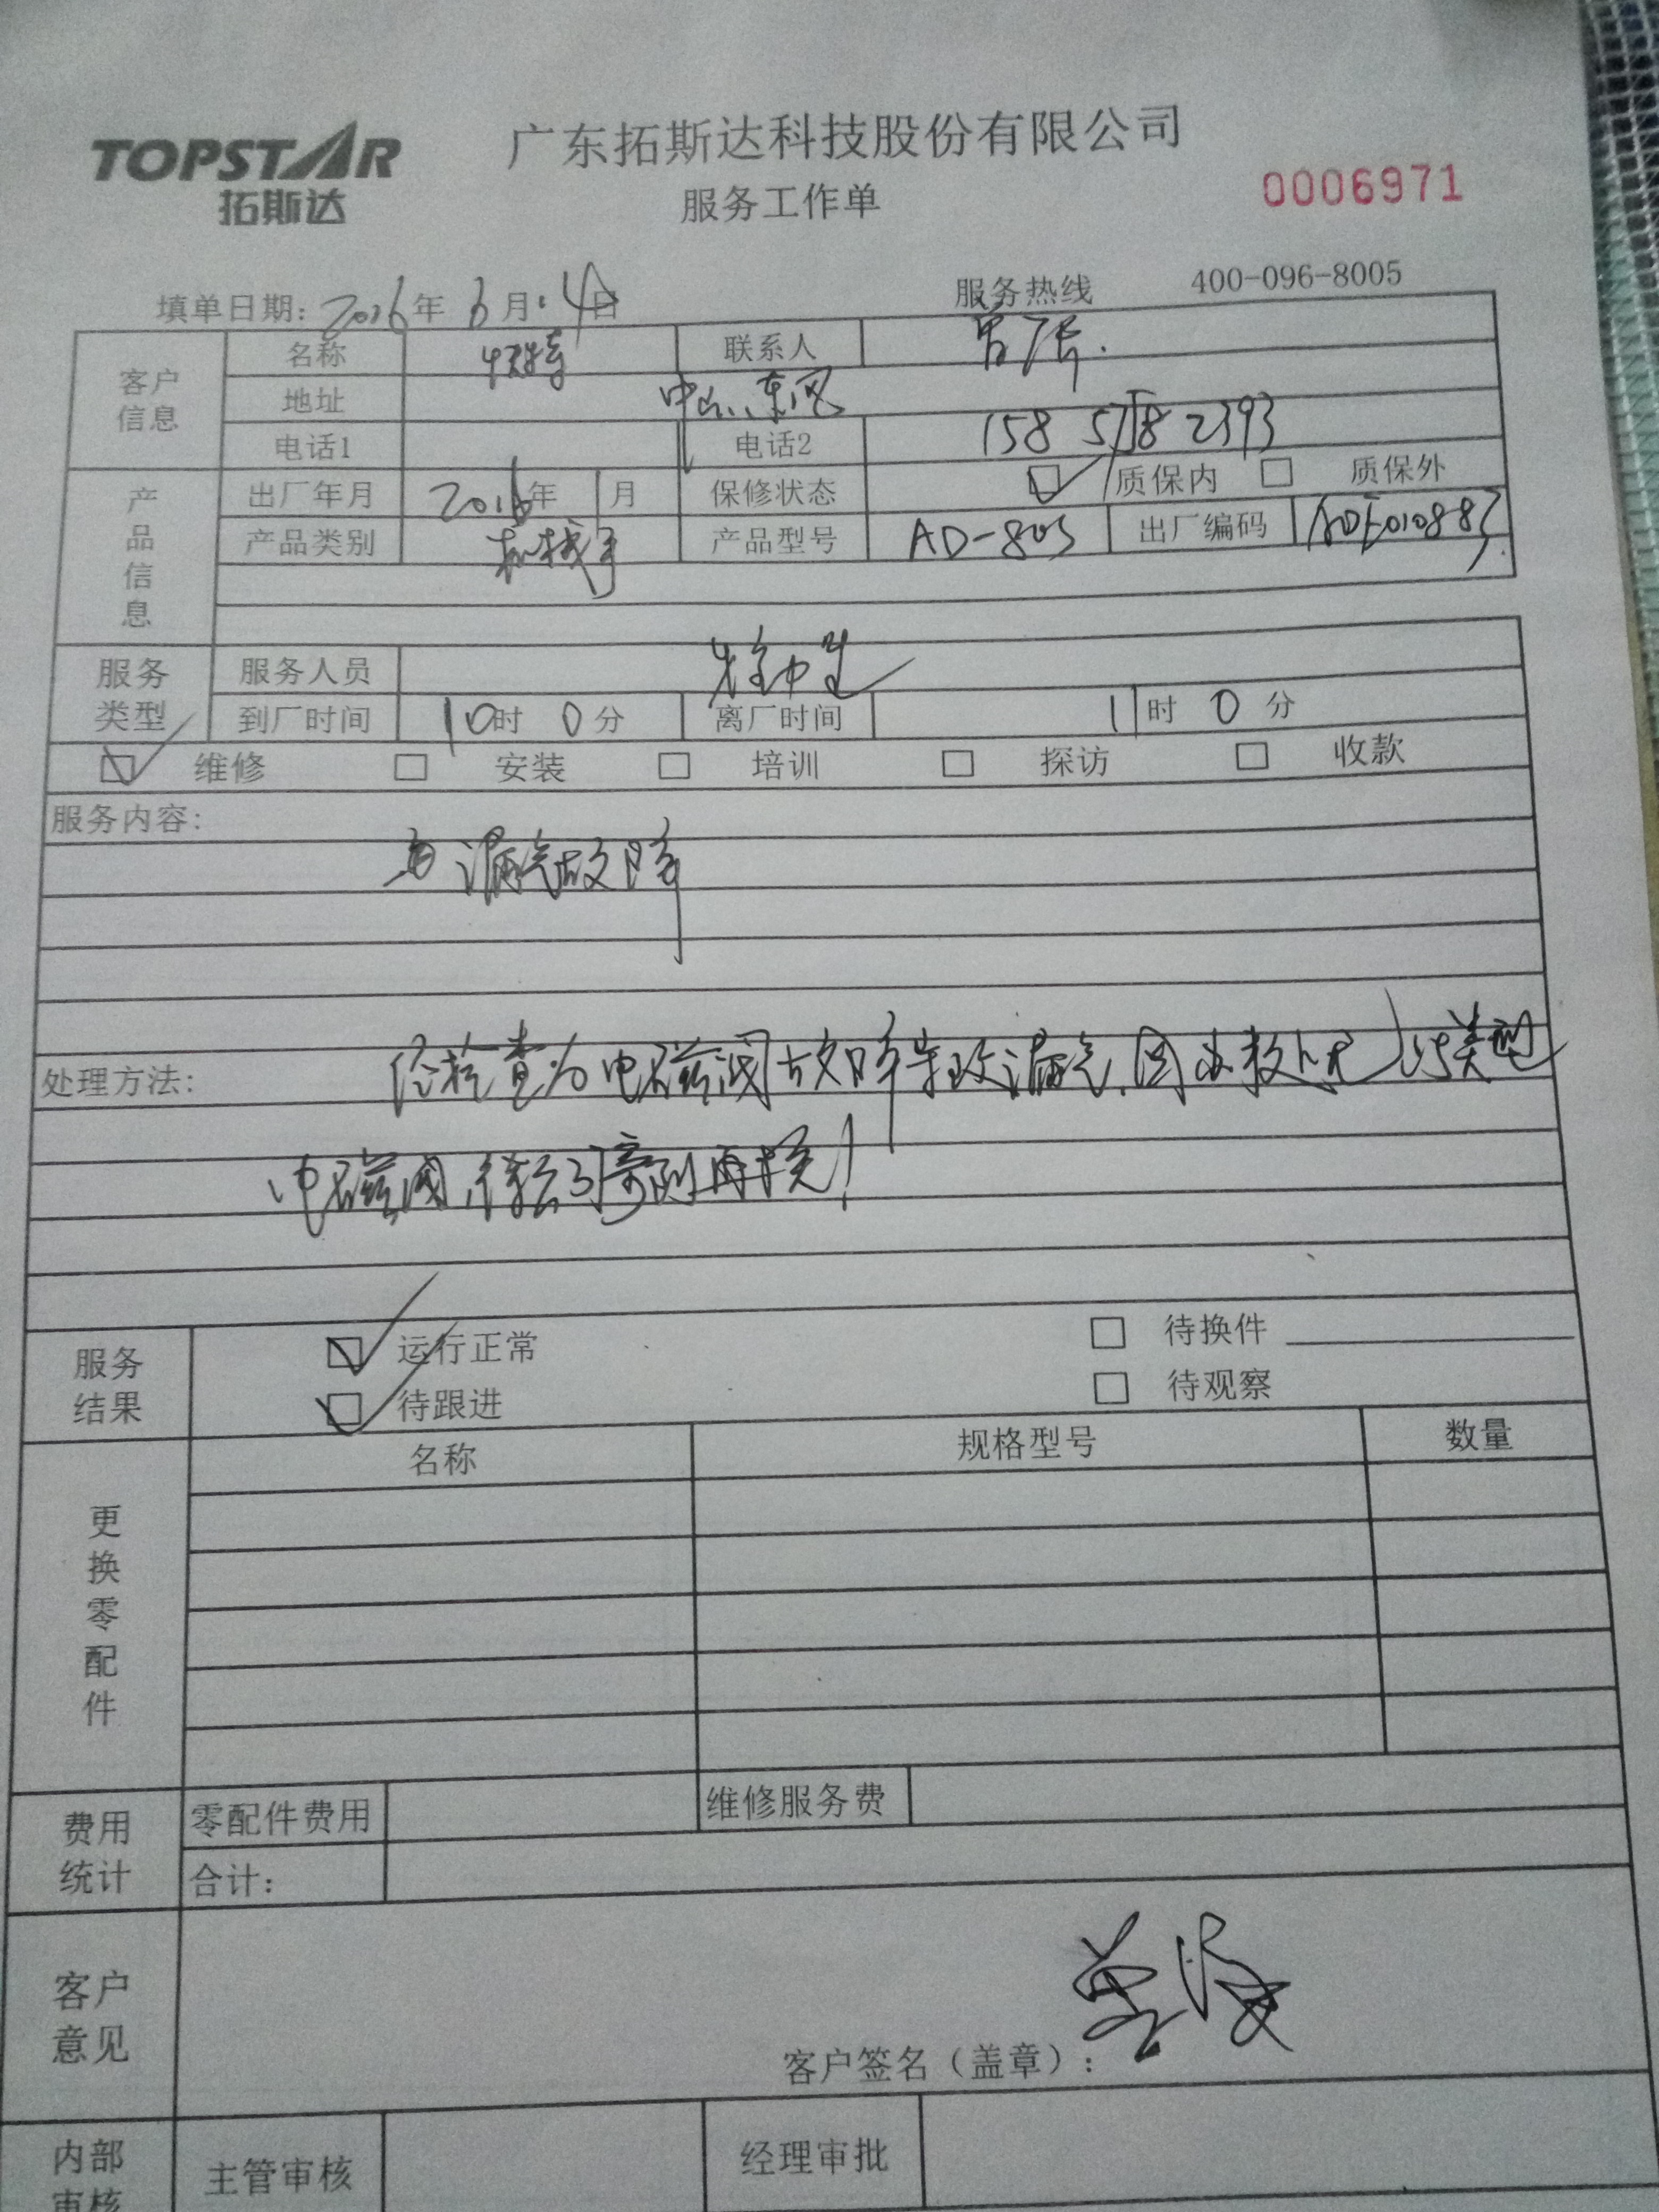 TOPSTAR
拓斯达
广东拓斯达科技股份有限公司
服务工作单
0006971
填单日期: 2016年 6月 14日
服务热线 400-096-8005
客户信息
名称
联系人
地址 中山东凤
电话1
电话2 158 5718 2393
产品信息
出厂年月 2016年 1月 保修状态 质保内 质保外
产品类别 机械手 产品型号 AD-80S 出厂编码
服务类型
服务人员
到厂时间 10时 0分 离厂时间 11时 0分
维修 安装 培训 探访 收款
服务内容:
漏气故障
处理方法: 经检查为电磁阀故障导致漏气,因办事处无此类型
电磁阀,待公司寄到再换!
服务结果
运行正常 待换件
待跟进 待观察
更换零配件
名称 规格型号 数量
费用统计
零配件费用 维修服务费
合计:
客户意见
客户签名(盖章):
内部审核
主管审核 经理审批